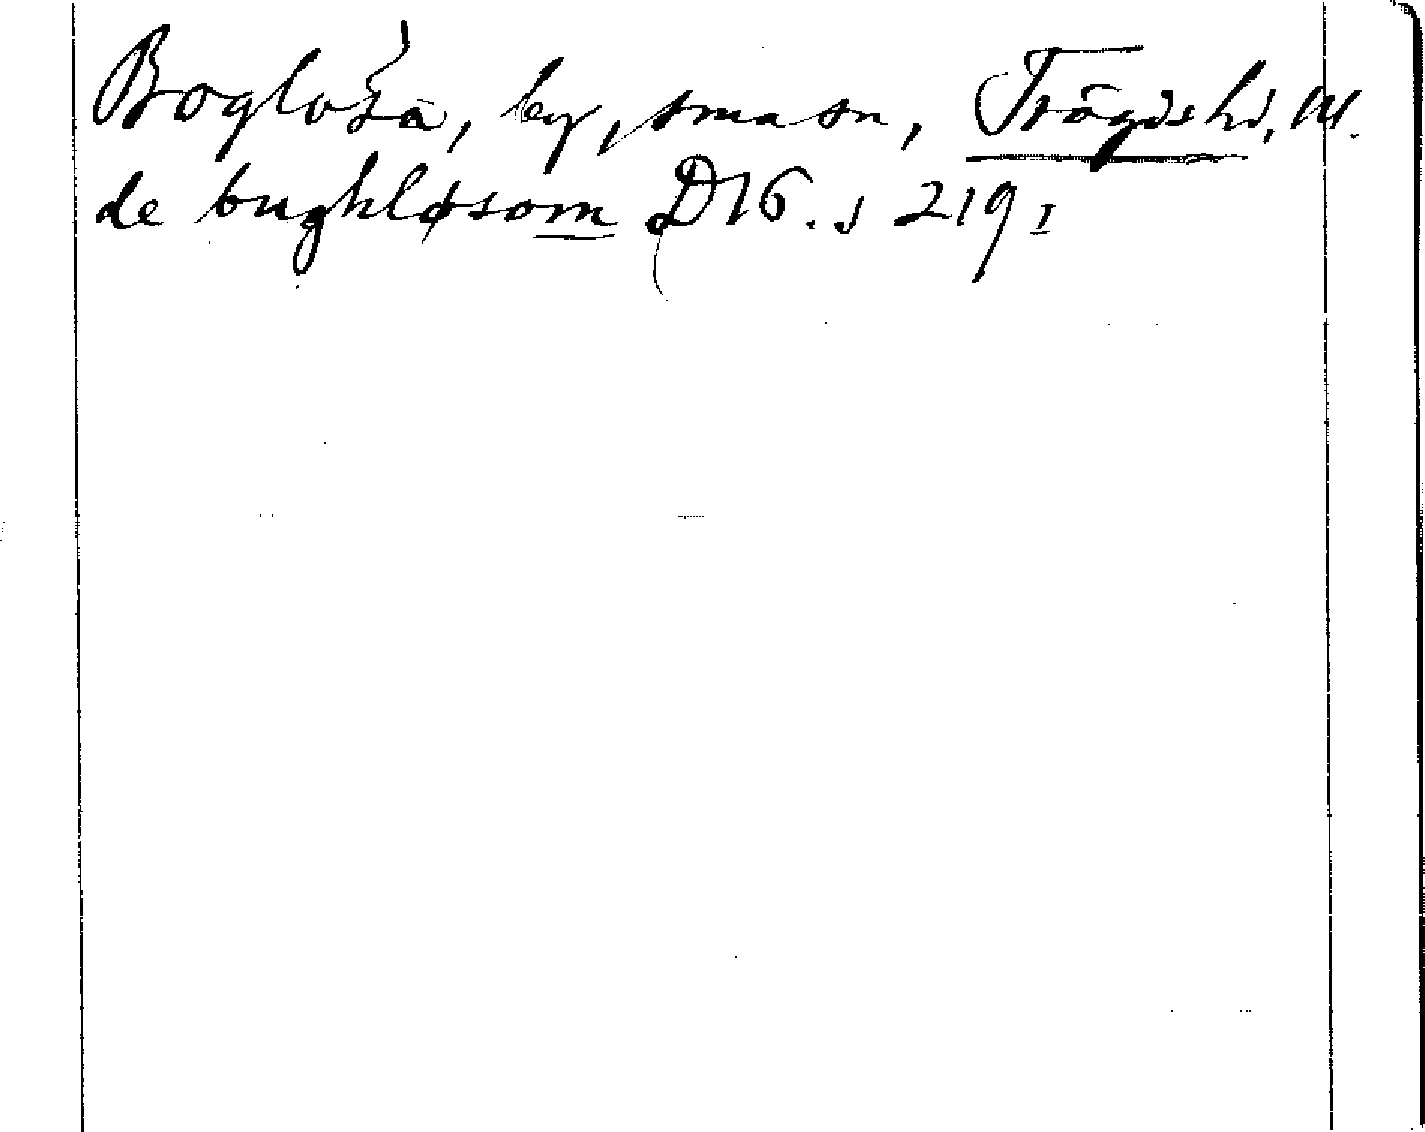 Boglösa, by, sma sn, Trögds hd, Ul.
de bughløsom D16. s 219 I